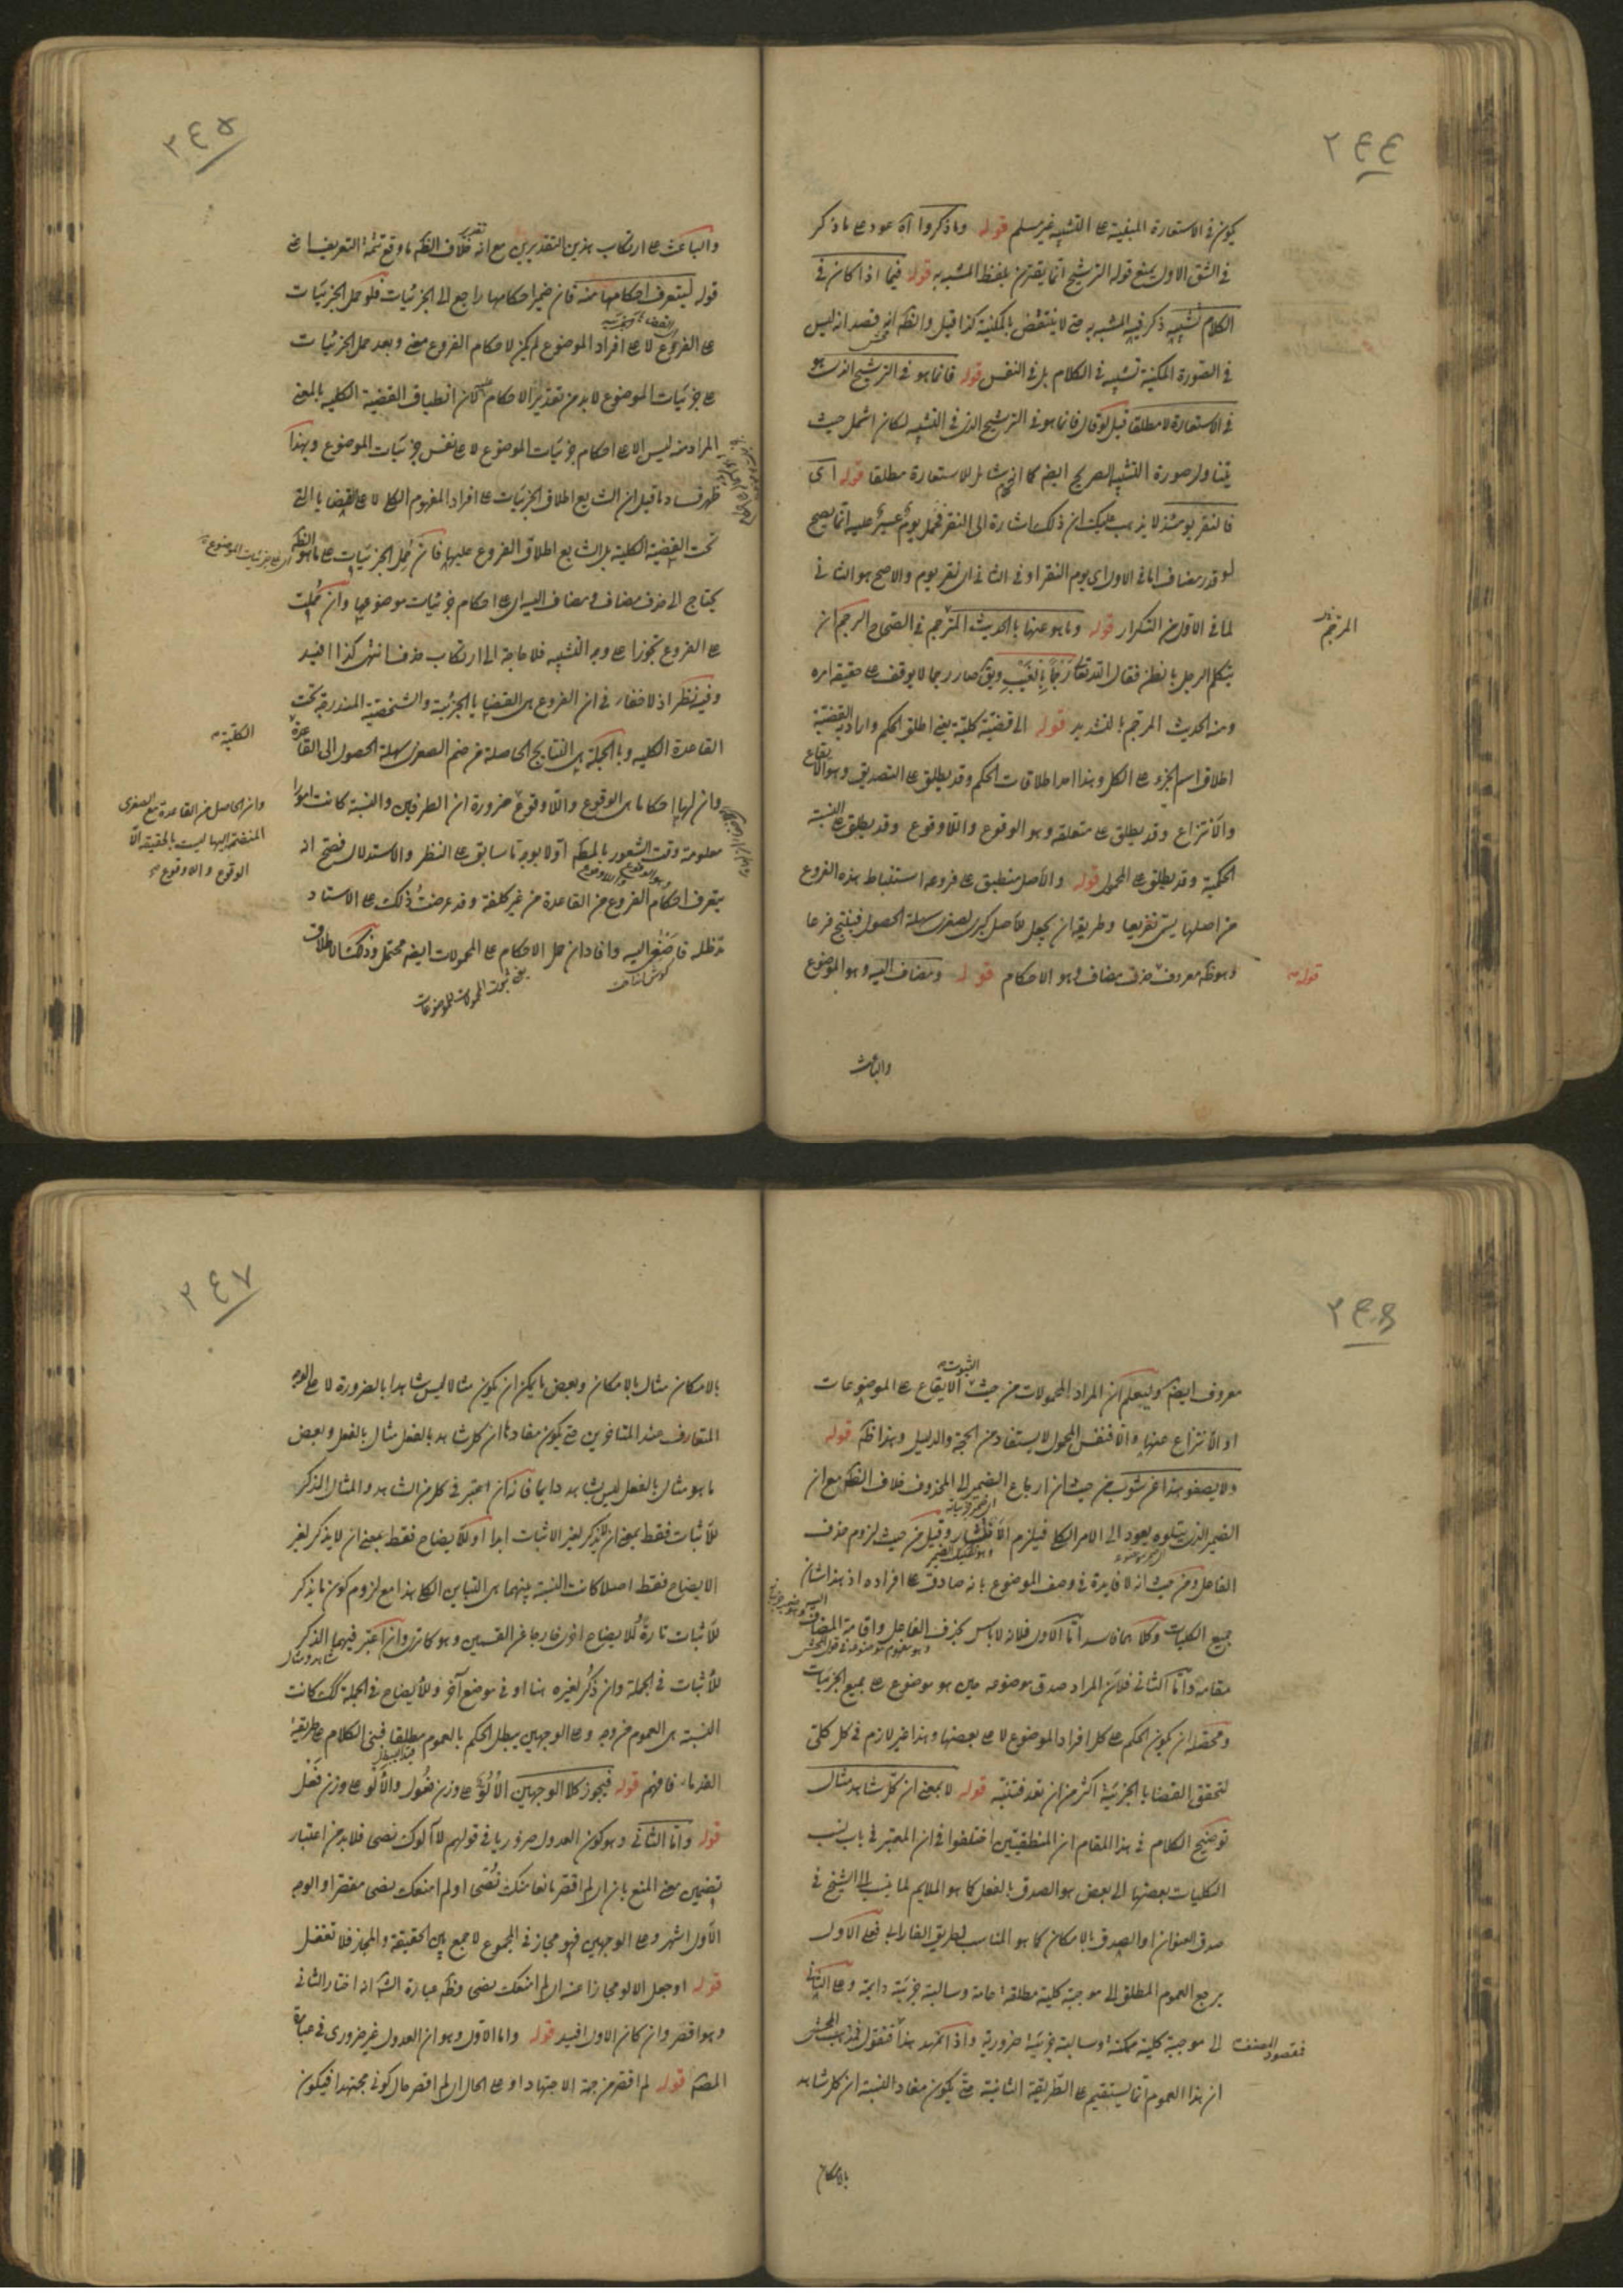 ٢٤٤
يكون في الاستعارة المبنية على التشبيه غير مسلم قوله وما ذكروا آه عود على ما ذكر
في الشق الاول يمنع قوله الترشيح انما يقترن بلفظ المشبه به قوله فيما اذا كان في
الكلام تشبيه ذكر فيه المشبه به حتى لا ينتقض بالمكنية كذا قيل والظ انه قصد انه ليس
في الصورة المكنية تشبيه في الكلام بل في النفس قوله فانما هو في الترشيح الذي هو
في الاستعارة لا مطلقا قيل لو قال فانما هو في الترشيح الذي في التشبيه لكان اشمل حيث
يتناول صورة التشبيه الصريح ايضا كما انه شامل للاستعارة مطلقا قوله اى
فالنفر يومئذ لا يذهب عليك ان ذلك اشارة الى النقر فحمل يوم عسير عليه انما يصح
لو قدر مضاف اما في الاول اى يوم النقر او في الثاني اى نقر يوم والاصح هو الثاني
لما في الاول من التكرار قوله وما هو عنها بالحديث المرجم في الصحاح الرجم ان
المرجم
يتكلم الرجل بالظن فقال الله تعالى رَجْماً بِالْغَيْبِ ويق صار رجما لا يوقف على حقيقة امره
ومنه الحديث المرجم بالتشديد قوله اى قضية كلية يعنى اطلق الحكم واراد به القضية
اطلاق اسم الجزء على الكل وهذا احد اطلاقات الحكم وقد يطلق على التصديق وهو الايقاع
والانتزاع وقد يطلق على متعلقه وهو الوقوع واللاوقوع وقد يطلق على النسبة
الحكمية وقد يطلق على المحمول قوله والاصل منطبق على فروعه استنباط هذه الفروع
من اصلها يسمى تفريعا وطريقه ان يجعل الاصل كبرى لصغرى سهلة الحصول فينتج فرعا
وهو ظ معروف حذف مضاف وهو الاحكام قوله ومضاف اليه وهو الموضوع
قوله
والباعث
٢٤٥
والباعث على ارتكاب هذين التقديرين مع انه خلاف الظ ما وقع تتمة التعريف اعنى
قوله ليتعرف احكامها منه فان ضمير احكامها راجع الى الجزئيات فلو حمل الجزئيات
على الفروع لا على افراد الموضوع لم يكن لاحكام الفروع معنى وبعد حمل الجزئيات
على جزئيات الموضوع لا بد من تقدير الاحكام لان انطباق القضية الكلية بالمعنى
المراد منه ليس الا على احكام جزئيات الموضوع لا على نفس جزئيات الموضوع وبهذا
ظهر فساد ما قيل ان الشايع اطلاق الجزئيات على افراد المفهوم الكلى لا على القضايا التي
تحت القضية الكلية بل الشايع اطلاق الفروع عليها فان حمل الجزئيات على ما هو الظ
يحتاج الى حذف مضاف ومضاف اليه اى على احكام جزئيات موضوعها وان حملت
على الفروع تجوزا على وجه التشبيه فلا حاجة الى ارتكاب حذف انتهى كذا افيد
وفيه نظر اذ لا خفاء في ان الفروع هى القضايا الجزئية والشخصية المندرجة تحت
القاعدة الكلية وبالجملة هى النتايج الحاصلة من ضم الصغرى سهلة الحصول الى القاعدة
الكلية
وان لها احكاما هى الوقوع واللاوقوع ضرورة ان الطرفين والنسبة كانت امورا
وان الحاصل من القاعدة مع الصغرى
المنضمة اليها ليست بالحقيقة الا
الوقوع واللاوقوع
معلومة وقت الشعور بالمط اولا بوجه ما سابق على النظر والاستدلال فصح انه
يتعرف احكام الفروع من القاعدة من غير كلفة وقد عرضت ذلك على الاستاد
مد ظله فاصغى اليه وافاد ان حمل الاحكام على المحمولات ايضا محتمل وذلك الاطلاق
يعنى ثبوت المحمولات للموضوعات
معروف ايضا وليعلم ان المراد المحمولات من حيث الايقاع على الموضوعات
الثبوت
او الانتزاع عنها والا فنفس المحمول لا يستفاد من الحجة والدليل وهذا ظ قوله
ولا يصفو هذا عن شوب من حيث ان ارجاع الضمير الى المحذوف خلاف الظ مع ان
الضمير الذي يتلوه يعود الى الامر الكلى فيلزم الانتشار وقيل من حيث لزوم حذف
الفاعل ومن حيث انه لا فايدة في وصف الموضوع بانه صادق على افراده اذ هذا شان
جميع الكليات وكلاهما فاسد اما الاول فلانه لا باس بحذف الفاعل واقامة المضاف اليه
مقامه واما الثاني فلان المراد صدق موضوعه حين هو موضوع على جميع الجزئيات
ومحصله ان يكون الحكم على كل افراد الموضوع لا على بعضها وهذا غير لازم في كل كلى
لتحقق القضايا الجزئية اكثر من ان تعد فتنبه قوله لا بمعنى ان كل شاهد مثال
توضيح الكلام في هذا المقام ان المنطقيين اختلفوا في ان المعتبر في باب نسب
الكليات بعضها الى بعض هو الصدق بالفعل كما هو الملايم لما نسب الى الشيخ في
صدق العنوان او الصدق بالامكان كما هو المناسب لطريق الفارابى فعلى الاول
يرجع العموم المطلق الى موجبة كلية مطلقة عامة وسالبة جزئية دايمة وعلى الثاني
الى موجبة كلية ممكنة وسالبة جزئية ضرورية واذا تمهد هذا فنقول
فمقصود المصنف
ان هذا العموم انما يستقيم على الطريقة الثانية حتى يكون مفاد النسبة ان كل شاهد
بالامكان
٢٤٧
بالامكان مثال بالامكان وبعض ما يمكن ان يكون مثالا ليس شاهدا بالضرورة لا على الوجه
المتعارف عند المتاخرين حتى يكون مفادها ان كل شاهد بالفعل مثال بالفعل وبعض
ما هو مثال بالفعل ليس بشاهد دايما فانه ان اعتبر في كل من الشاهد والمثال الذكر
للاثبات فقط بمعنى ان لا يذكر لغير الاثبات ابدا او للايضاح فقط بمعنى ان لا يذكر لغير
الايضاح فقط اصلا كانت النسبة بينهما هى التباين الكلى هذا مع لزوم كون ما يذكر
للاثبات تارة وللايضاح اخرى خارجا عن القسمين وهو كما ترى وان اعتبر فيهما الذكر
للاثبات في الجملة وان ذكر لغيره هنا او في موضع آخر وللايضاح في الجملة كذلك كانت
النسبة هى العموم من وجه وعلى الوجهين يبطل الحكم بالعموم مطلقا فبنى الكلام على طريقة
القدماء فافهم قوله فيجوز كلا الوجهين الأُلُوّ على وزن فُعُول والأَلْو على وزن فَعْل
قوله واما الثاني وهو كون العدول ضروريا في قولهم لا آلوك نصحى فلا بد من اعتبار
تضمين معنى المنع بان اى لم اقصر مانعا منك نصحى او لم امنعك نصحى مقصرا والوجه
الاول اشهر وعلى الوجهين فهو مجاز في المجموع لا جمع بين الحقيقة والمجاز فلا تغفل
قوله او جعل الالو مجازا عنه اى لم امنعك نصحى وظ عبارة الش انه اختار الثاني
وهو اقصر وان كان الاول افيد قوله واما الاول وهو ان العدول غير ضرورى في عبارة
المص قوله لم اقصر من جهة الاجتهاد او على الحال اى لم اقصر حال كونى مجتهدا فيكون